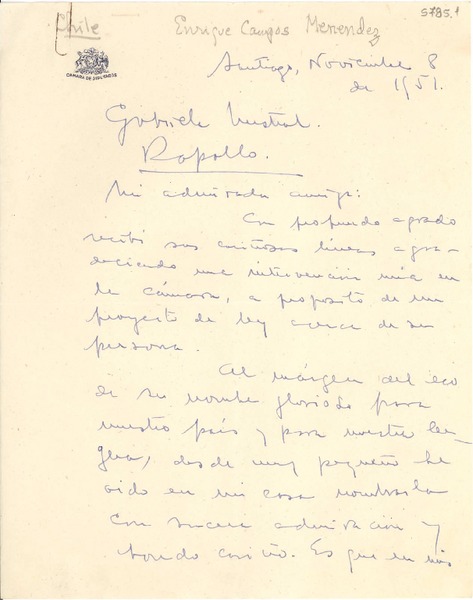 Chile Enrique Campos Menendez 5785.1
CAMARA DE DIPUTADOS
Santiago, Noviembre 8
de 1951.
Gabriela Mistral.
Rapallo.
Mi admirada amiga:
Con profundo agrado
recibí sus cariñosas líneas agra-
deciendo una intervención mía en
la cámara, a propósito de un
proyecto de ley acerca de su
persona.
Al márgen del eco
de su nombre glorioso para
nuestro país y para nuestra len-
gua, desde muy pequeño he
oido en mi casa nombrarla
con sincera admiración y
hondo cariño. Es que en mis